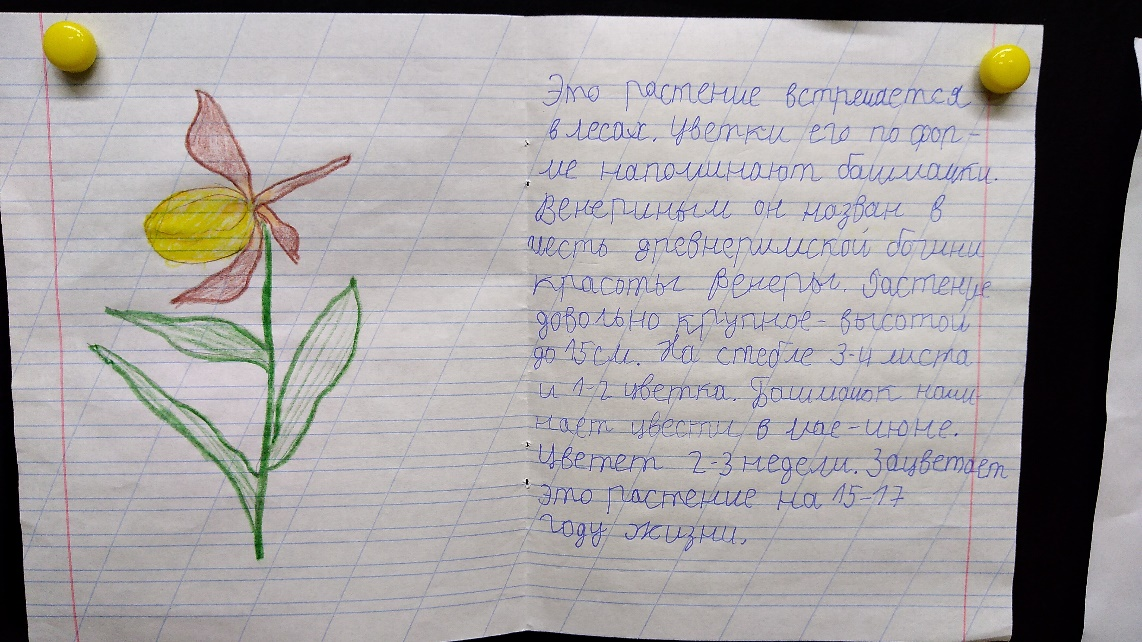 Это растение встречается
в лесах. Цветки его по фор-
ме напоминают башмачки.
Венериным он назван в
честь древнеримской богини
красоты Венеры. Растение
довольно крупное - высотой
до 15 см. На стебле 3-4 листа
и 1-2 цветка. Башмачок начи
нает цвести в мае-июне.
Цветет 2-3 недели. Зацветает
это растение на 15-17
году жизни.